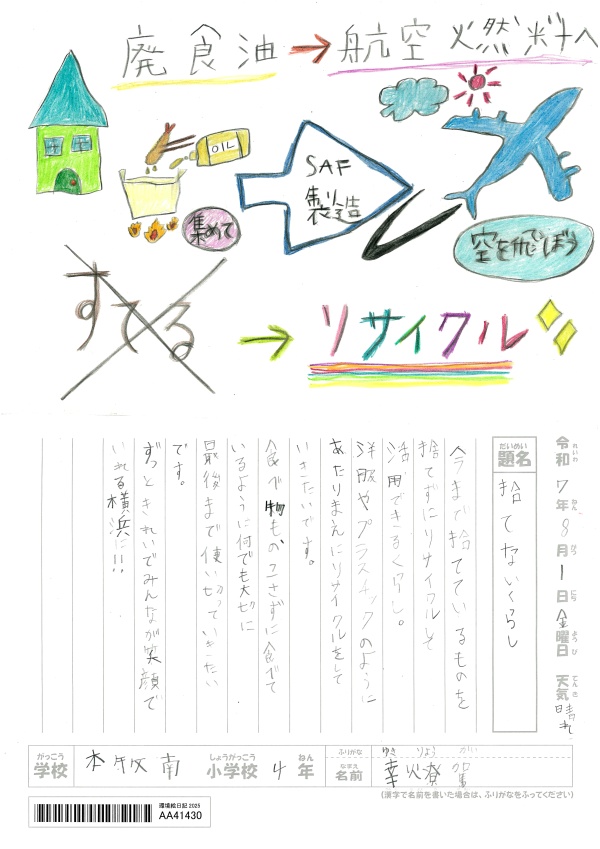 廃食油→航空燃料へ
OIL
集めて
SAF
製造
空を飛ばそう
すてる
→リサイクル
令和7年8月1日金曜日 天気晴れ
れいわ ねん がつ にち ようび てんき
だいめい
題名
捨てないくらし
今まで捨てているものを
捨てずにリサイクルで
活用できるくらし。
洋服やプラスチックのように
あたりまえにリサイクルをして
いきたいです。
食べ物ものこさずに食べて
いるように何でも大切に
最後まで使い切っていきたい
です。
ずっときれいでみんなが笑顔で
いれる横浜に!!
がっこう しょうがっこう ねん ふりがな ゆき りょう が
学校 本牧南 小学校 4年
なまえ
名前 幸 燎
(漢字で名前を書いた場合は、ふりがなをふってください)
環境絵日記 2025
AA41430